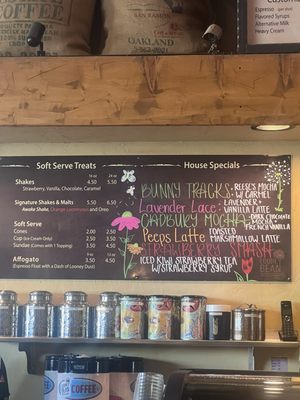 SAN RAMON
OAKLAND
Espresso (per shot)
Flavored Syrups
Alternative Milk
Heavy Cream
Soft Serve Treats
Shakes 4.50 5.50
Strawberry, Vanilla, Chocolate, Caramel
Signature Shakes & Malts 5.50 6.50
Awake Shake, Orange Lavender and Oreo
Soft Serve
Cones 2.00 2.50
Cup (Ice Cream Only) 3.00 3.50
Sundae (Comes with 1 Topping) 3.50 4.50
Affogato 3.50 4.50
(Espresso Float with a Dash of Looney Dust)
House Specials
BUNNY TRACKS: REESE'S MOCHA
W/ CARMEL
Lavender Lace: LAVENDER +
VANILLA LATTE
CADBURY MOCHA: DARK CHOCOLATE
MOCHA +
FRENCH VANILLA
Peeps Latte TOASTED
MARSHMALLOW LATTE
STRAWBERRY SMASH
ICED KIWI STRAWBERRY TEA
W/STRAWBERRY SYRUP
BEAN
COFFEE